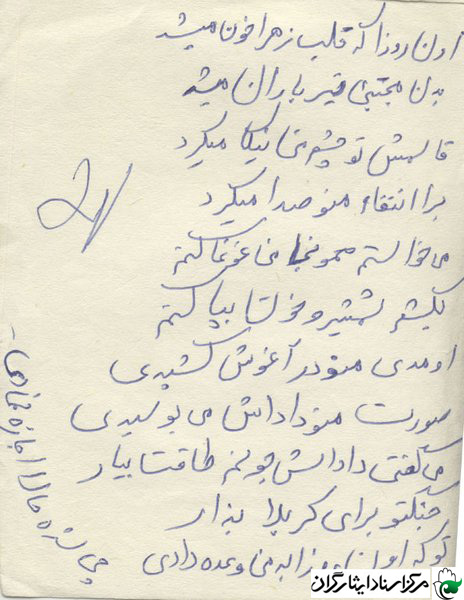 اون روزا که قلب زهرا خون میشد
بدن مجتبی تیر باران میشد
قاسمش تو چشم نگا میکرد
برا انتقام منو صدا میکرد
می خواستم همونجا غوغا کنم
بکشم شمشیر و بپا کنم
اومدی منو در آغوش کشیدی
صورت منو داداش می بوسیدی
می گفتی داداش جونم طاقت بیار
جنگتو برای کربلا بذار
تو که اون روزا به من وعده دادی
چی شده حالا اجازه نمیدی
مرکز اسناد ایثارگران